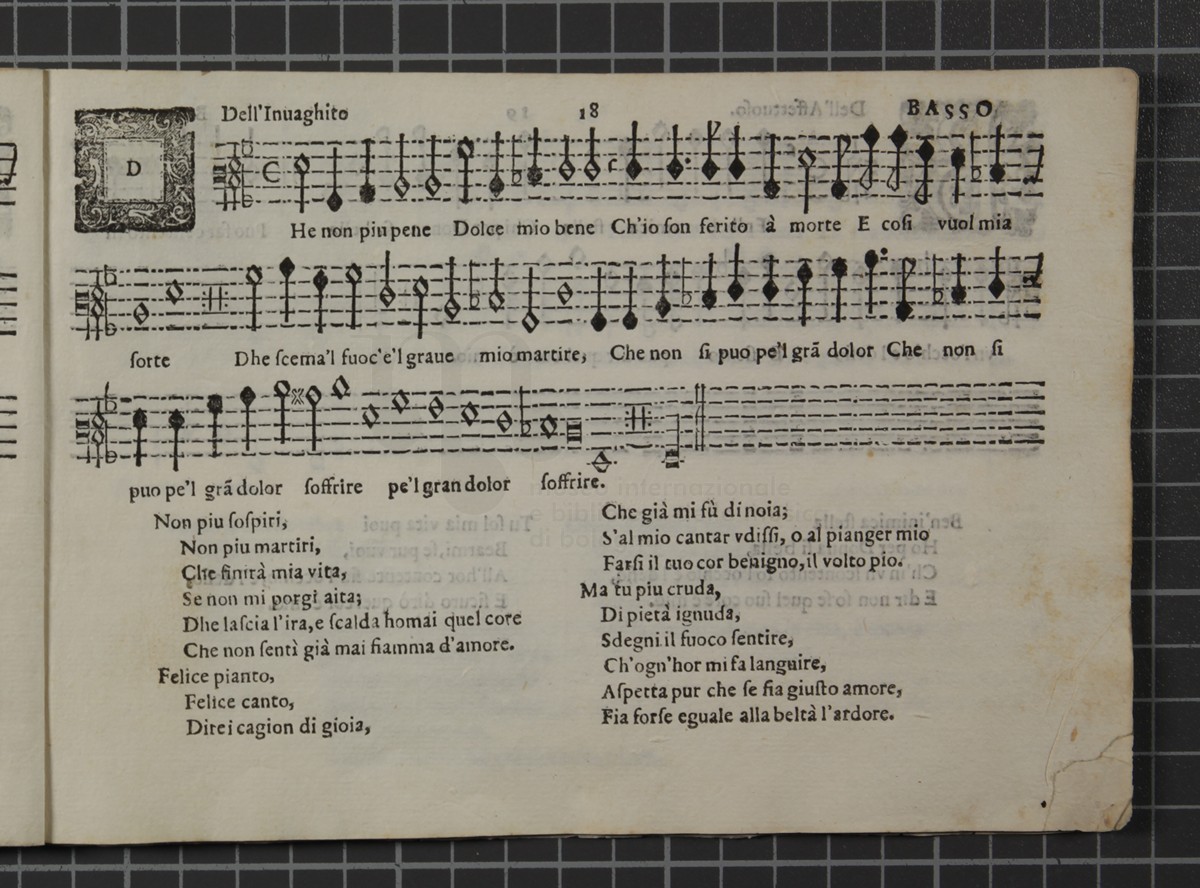 Dell'Inuaghito 18 BASSO
D
He non piu pene Dolce mio bene Ch'io son ferito à morte E cosi vuol mia
sorte Dhe scema'l fuoc'e'l graue mio martire, Che non si puo pe'l grã dolor Che non si
puo pe'l grã dolor soffrire pe'l gran dolor soffrire.
Non piu sospiri,
Non piu martiri,
Che finirà mia vita,
Se non mi porgi aita;
Dhe lascia l'ira, e scalda homai quel core
Che non sentì già mai fiamma d'amore.
Felice pianto,
Felice canto,
Direi cagion di gioia,
Che già mi fù di noia;
S'al mio cantar vdissi, o al pianger mio
Farsi il tuo cor benigno, il volto pio.
Ma tu piu cruda,
Di pietà ignuda,
Sdegni il fuoco sentire,
Ch'ogn'hor mi fa languire,
Aspetta pur che se fia giusto amore,
Fia forse eguale alla beltà l'ardore.